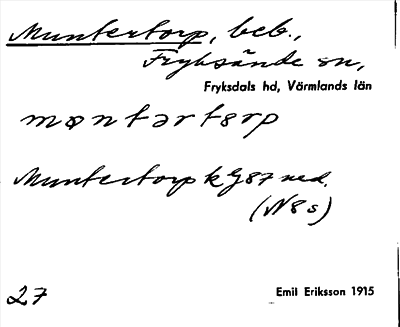 Muntertorp, beb.,
Fryksände sn,
Fryksdals hd, Värmlands län
møntərtørp
Muntertorp k G87 ned.
(N8s)
27
Emil Eriksson 1915